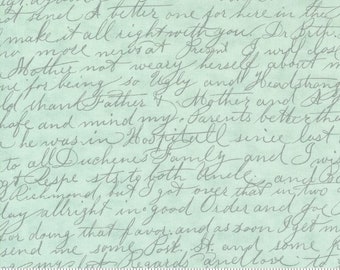 not send A better one for here in the
make it all right with you, Dr
no more news at Present I will desc
Mother not weary herself about m
me for being so Ugly and Headstrong
ld thank Father & Mother and I
hope and mind my Parents better tha
he was in Hospital since last
to all Duchenes Family, and I wi
Respects to both Uncle and
Richmond, but I got over that in two
day allright in good Order and for
for doing that favor and as soon I get m
send me some Post St. and some
my best Regards and love to